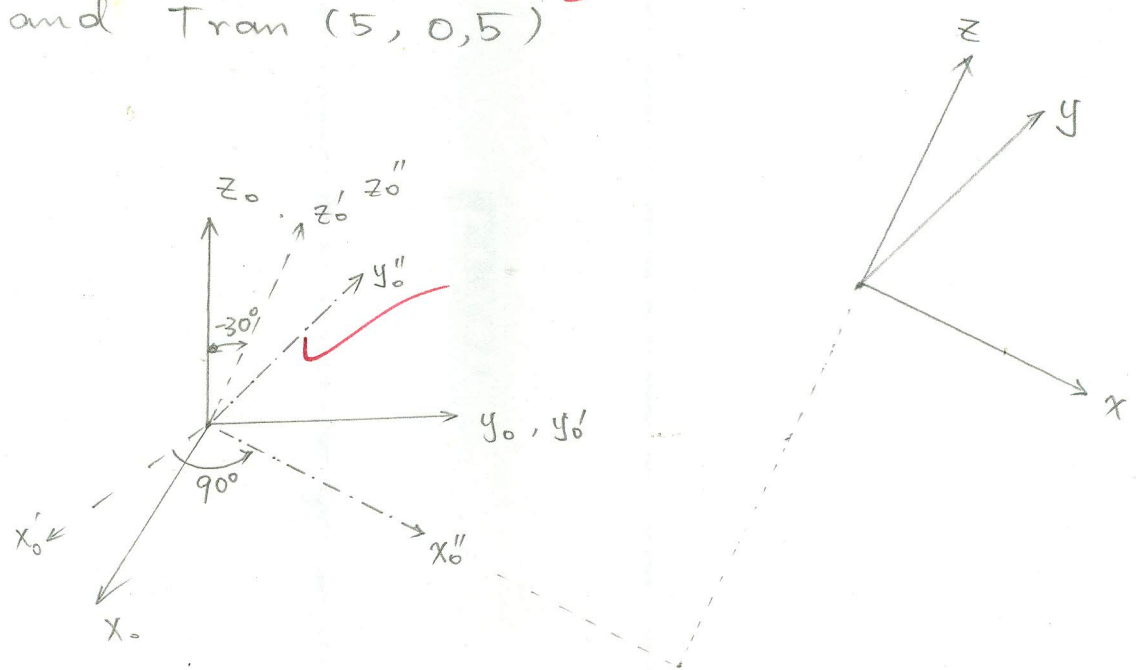 and Tran (5, 0, 5)
z
y
z₀
z₀' z₀''
y₀''
-30°
y₀, y₀'
x
90°
x₀'
x₀''
x₀